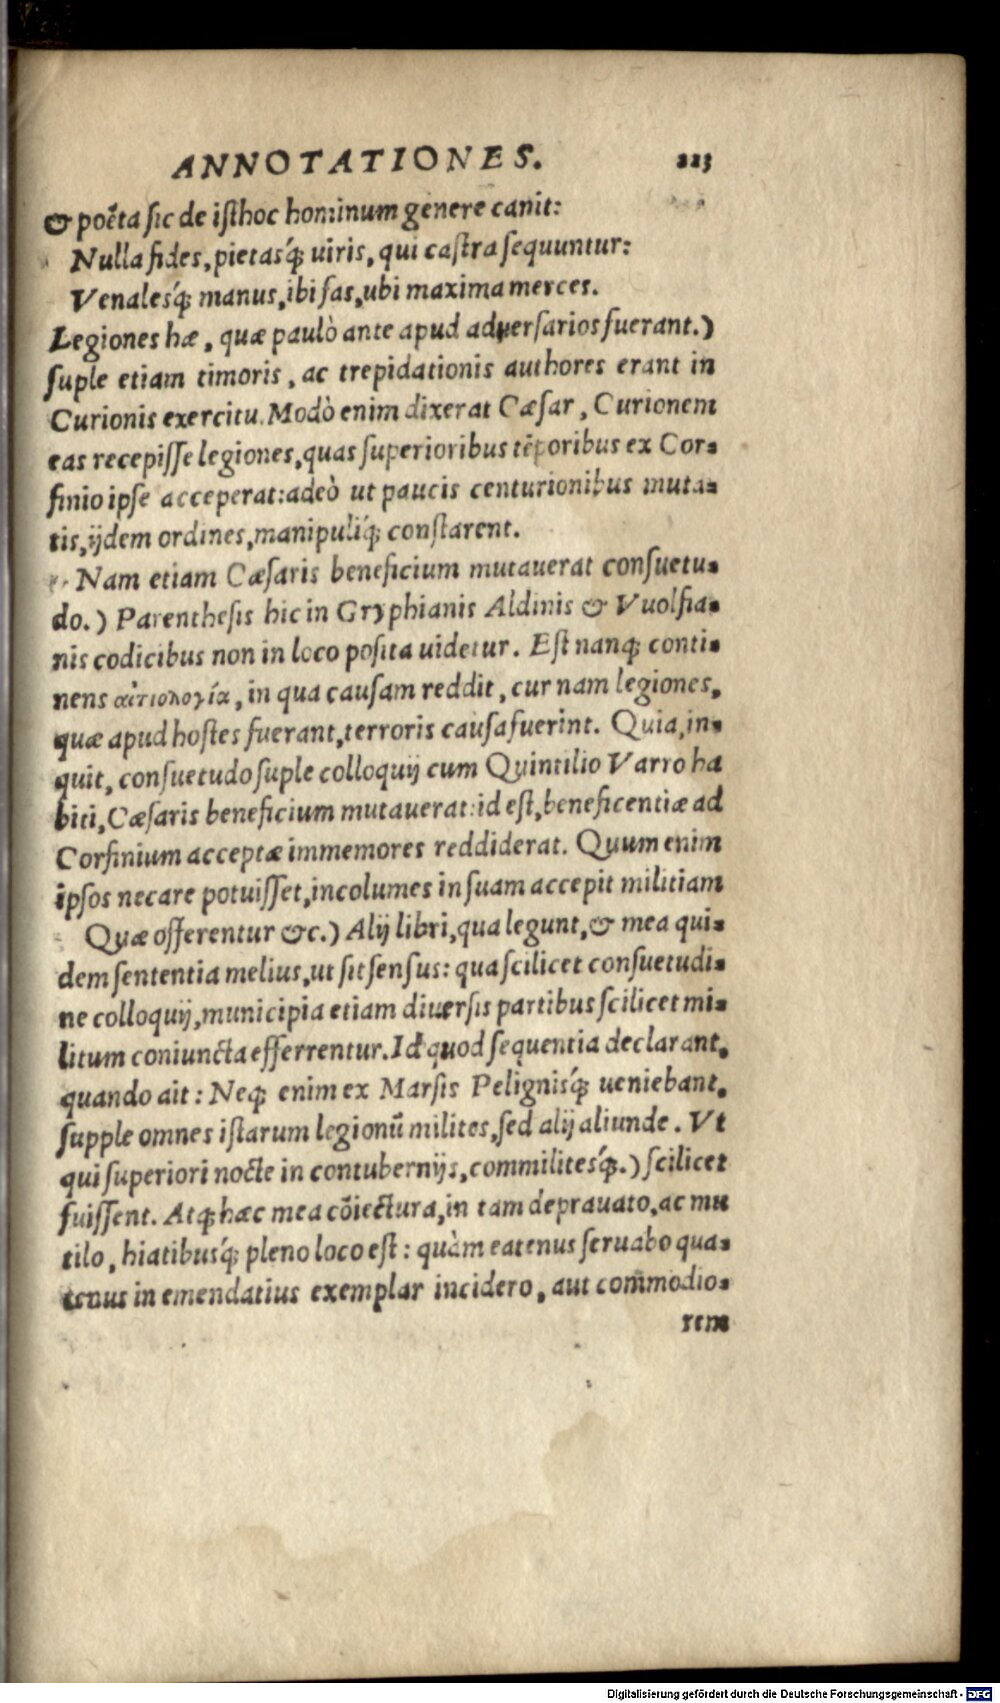 ANNOTATIONES. 223
& poëta sic de isthoc hominum genere canit:
Nulla fides, pietasq́; uiris, qui castra sequuntur:
Venalesq́; manus, ibi fas, ubi maxima merces.
Legiones hæ, quæ paulò ante apud aduersarios fuerant.)
suple etiam timoris, ac trepidationis authores erant in
Curionis exercitu. Modò enim dixerat Cæsar, Curionem
eas recepisse legiones, quas superioribus tẽporibus ex Cor-
finio ipse acceperat: adeò ut paucis centurionibus muta-
tis, ijdem ordines, manipuliq́; constarent.
Nam etiam Cæsaris beneficium mutauerat consuetu-
do.) Parenthesis hic in Gryphianis Aldinis & Vuolfia-
nis codicibus non in loco posita uidetur. Est nanq; conti-
nens αἰτιολογία, in qua causam reddit, cur nam legiones,
quæ apud hostes fuerant, terroris causa fuerint. Quia, in-
quit, consuetudo suple colloquij cum Quintilio Varro ha
biti, Cæsaris beneficium mutauerat: id est, beneficentiæ ad
Corfinium acceptæ immemores reddiderat. Quum enim
ipsos necare potuisset, incolumes in suam accepit militiam
Quæ offerentur &c.) Alij libri, qua legunt, & mea qui-
dem sententia melius, ut sit sensus: qua scilicet consuetudi-
ne colloquij, municipia etiam diuersis partibus scilicet mi-
litum coniuncta efferrentur. Id quod sequentia declarant,
quando ait: Neq; enim ex Marsis Pelignisq́; ueniebant,
supple omnes istarum legionũ milites, sed alij aliunde. Vt
qui superiori nocte in contubernijs, commilitesq́;.) scilicet
fuissent. Atq; hæc mea cõiectura, in tam deprauato, ac mu
tilo, hiatibusq́; pleno loco est: quàm eatenus seruabo qua-
tenus in emendatius exemplar incidero, aut commodio-
rem
Digitalisierung gefördert durch die Deutsche Forschungsgemeinschaft - DFG